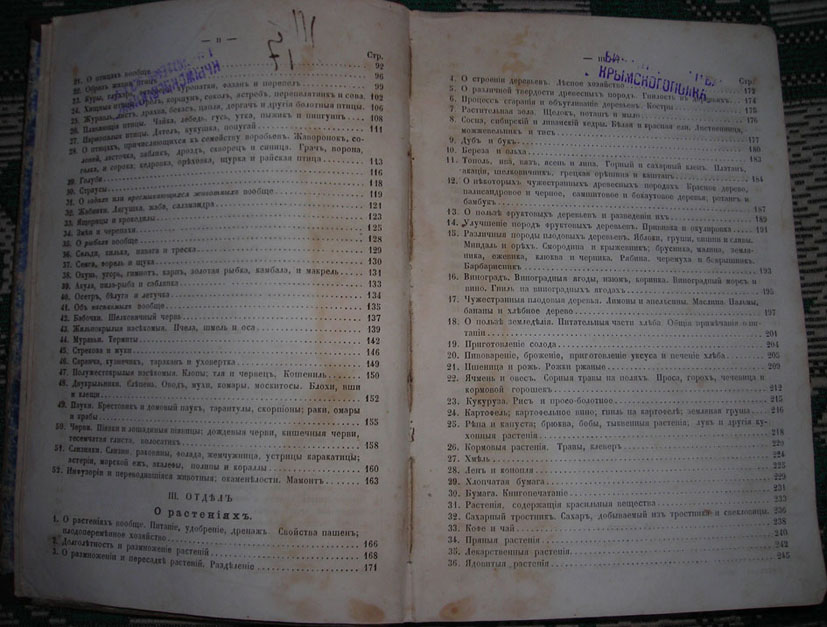 — II —
Стр.
21. О птицахъ вообще 92
22. Образъ жизни птицъ 96
99
102
106
108
27. Парноногія птицы. Дятелъ, кукушка, попугай 111
28. О птицахъ, причисляющихся къ семейству воробьевъ. Жаворонокъ, со-
ловей, ласточка, зябликъ, дроздъ, скворецъ и синица. Грачъ, ворона,
галка, и сорока; кедровка, орѣховка, щурка и райская птица 113
29. Голуби 116
30. Страусы 118
31. О гадахъ или пресмыкающихся животныхъ вообще 119
32. Жабники. Лягушка, жаба, саламандра 121
33. Ящерицы и крокодилы 123
34. Змѣи и черепахи 125
35. О рыбахъ вообще 128
36. Сельдь, килька, пикша и треска 129
37. Семга, форель и щука 130
38. Окунь, угорь, гимнотъ, карпъ, золотая рыбка, камбала, и макрель 131
39. Акула, пила-рыба и саблянка 133
40. Осетръ, бѣлуга и летучка 134
41. Объ насѣкомыхъ вообще 135
42. Бабочки. Шелковичный червь 137
43. Жильнокрылыя насѣкомыя. Пчела, шмель и оса 139
44. Муравьи. Термиты 142
45. Стрекоза и мухи 146
46. Саранча, кузнечикъ, тараканъ и уховертка 149
47. Полужесткокрылыя насѣкомыя. Клопы; тля и червецъ, Кошениль 150
48. Двукрыльники. Слѣпень. Оводъ, мухи, комары, москитосы. Блохи, вши
и клещи 152
49. Пауки. Крестовикъ и домовый паукъ, тарантулы, скорпіоны; раки, омары
и крабы
50. Черви. Піявки и лошадиныя піявицы; дождевые черви, кишечные черви,
тесемчатая глиста, волосатикъ 158
51. Слизняки. Слизни, раковины, волада, жемчужница, устрицы каракатицы;
астеріи, морской ежъ, акалефы, полипы и кораллы 160
52. Инфузоріи и переводившіяся животныя; окаменѣлости. Мамонтъ 163
III. ОТДѢЛЪ
О растеніяхъ.
1. О растеніяхъ вообще. Питаніе, удобреніе, дренажъ Свойства пашенъ;
плодоперемѣнное хозяйство 166
2. Долголѣтность и размноженіе растеній 168
3. О размноженіи и пересадкѣ растеній. Раздѣленіе 171
— III —
КРЫМСКОГО ПОЛКА
Стр.
4. О строеніи деревьевъ. Лѣсное хозяйство 172
5. О различной твердости древесныхъ породъ. Гнилость въ деревьяхъ 174
6. Процессъ сгаранія и обугливаніе деревьевъ. Костры 175
7. Растительная зола. Щелокъ, поташъ и мыло 176
8. Сосна, сибирскій и ливанскій кедры. Бѣлая и красная ели. Лиственница,
можжевельникъ и тисъ 177
9. Дубъ и букъ 180
10. Береза и ольха 183
11. Тополь, ива, вязъ, ясень и липа. Горный и сахарный кленъ. Платанъ,
акація, шелковичникъ, грецкая орѣшина и каштанъ 184
12. О нѣкоторыхъ чужестранныхъ древесныхъ породахъ Красное дерево,
палисандровое и черное, самшитовое и бокаутовое деревья; ротангъ и
бамбукъ 187
13. О пользѣ фруктовыхъ деревьевъ и разведеніи ихъ 189
14. Улучшеніе породъ фруктовыхъ деревьевъ. Прививка и окулировка 191
15. Различныя породы плодовыхъ деревьевъ. Яблоки, груши, вишни и сливы.
Миндаль и орѣхъ. Смородина и крыжевникъ; брусника, малина, земля-
ника, ежевика, клюква и черника. Рябина. черемуха и боярышникъ.
Барбарисникъ 193
16. Виноградъ. Виноградныя ягоды, изюмъ, коринка. Виноградный морсъ и
вино. Гниль на виноградныхъ ягодахъ 195
17. Чужестранныя плодовыя деревья. Лимоны и апельсины. Маслина. Пальмы,
бананы и хлѣбное дерево 197
18. О пользѣ земледѣлія. Питательныя части хлѣба. Общія примѣчанія о пи-
таніи 201
19. Приготовленіе солода 204
20. Пивовареніе, броженіе, приготовленіе уксуса и печеніе хлѣба 205
21. Пшеница и рожь. Рожки ржаные 209
22. Ячмень и овесъ. Сорныя травы на поляхъ. Просо, горохъ, чечевица и
кормовой горошекъ 212
23. Кукуруза. Рисъ и просо-болотное
24. Картофель; картофельное вино, гниль на картофелѣ; земляная груша 216
25. Рѣпа и капуста; брюква, бобы, тыквенныя растенія; лукъ и другія ку-
хонныя растенія 218
26. Кормовыя растенія. Травы, клеверъ 220
27. Хмѣль 224
28. Ленъ и конопля 225
29. Хлопчатая бумага 229
30. Бумага. Книгопечатаніе 231
31. Растенія, содержащія красильныя вещества 233
32. Сахарный тростникъ. Сахаръ, добываемый изъ тростника и свекловицы. 236
33. Кофе и чай 238
34. Пряныя растенія 240
35. Лекарственныя растенія. 242
36. Ядовитыя растенія 245